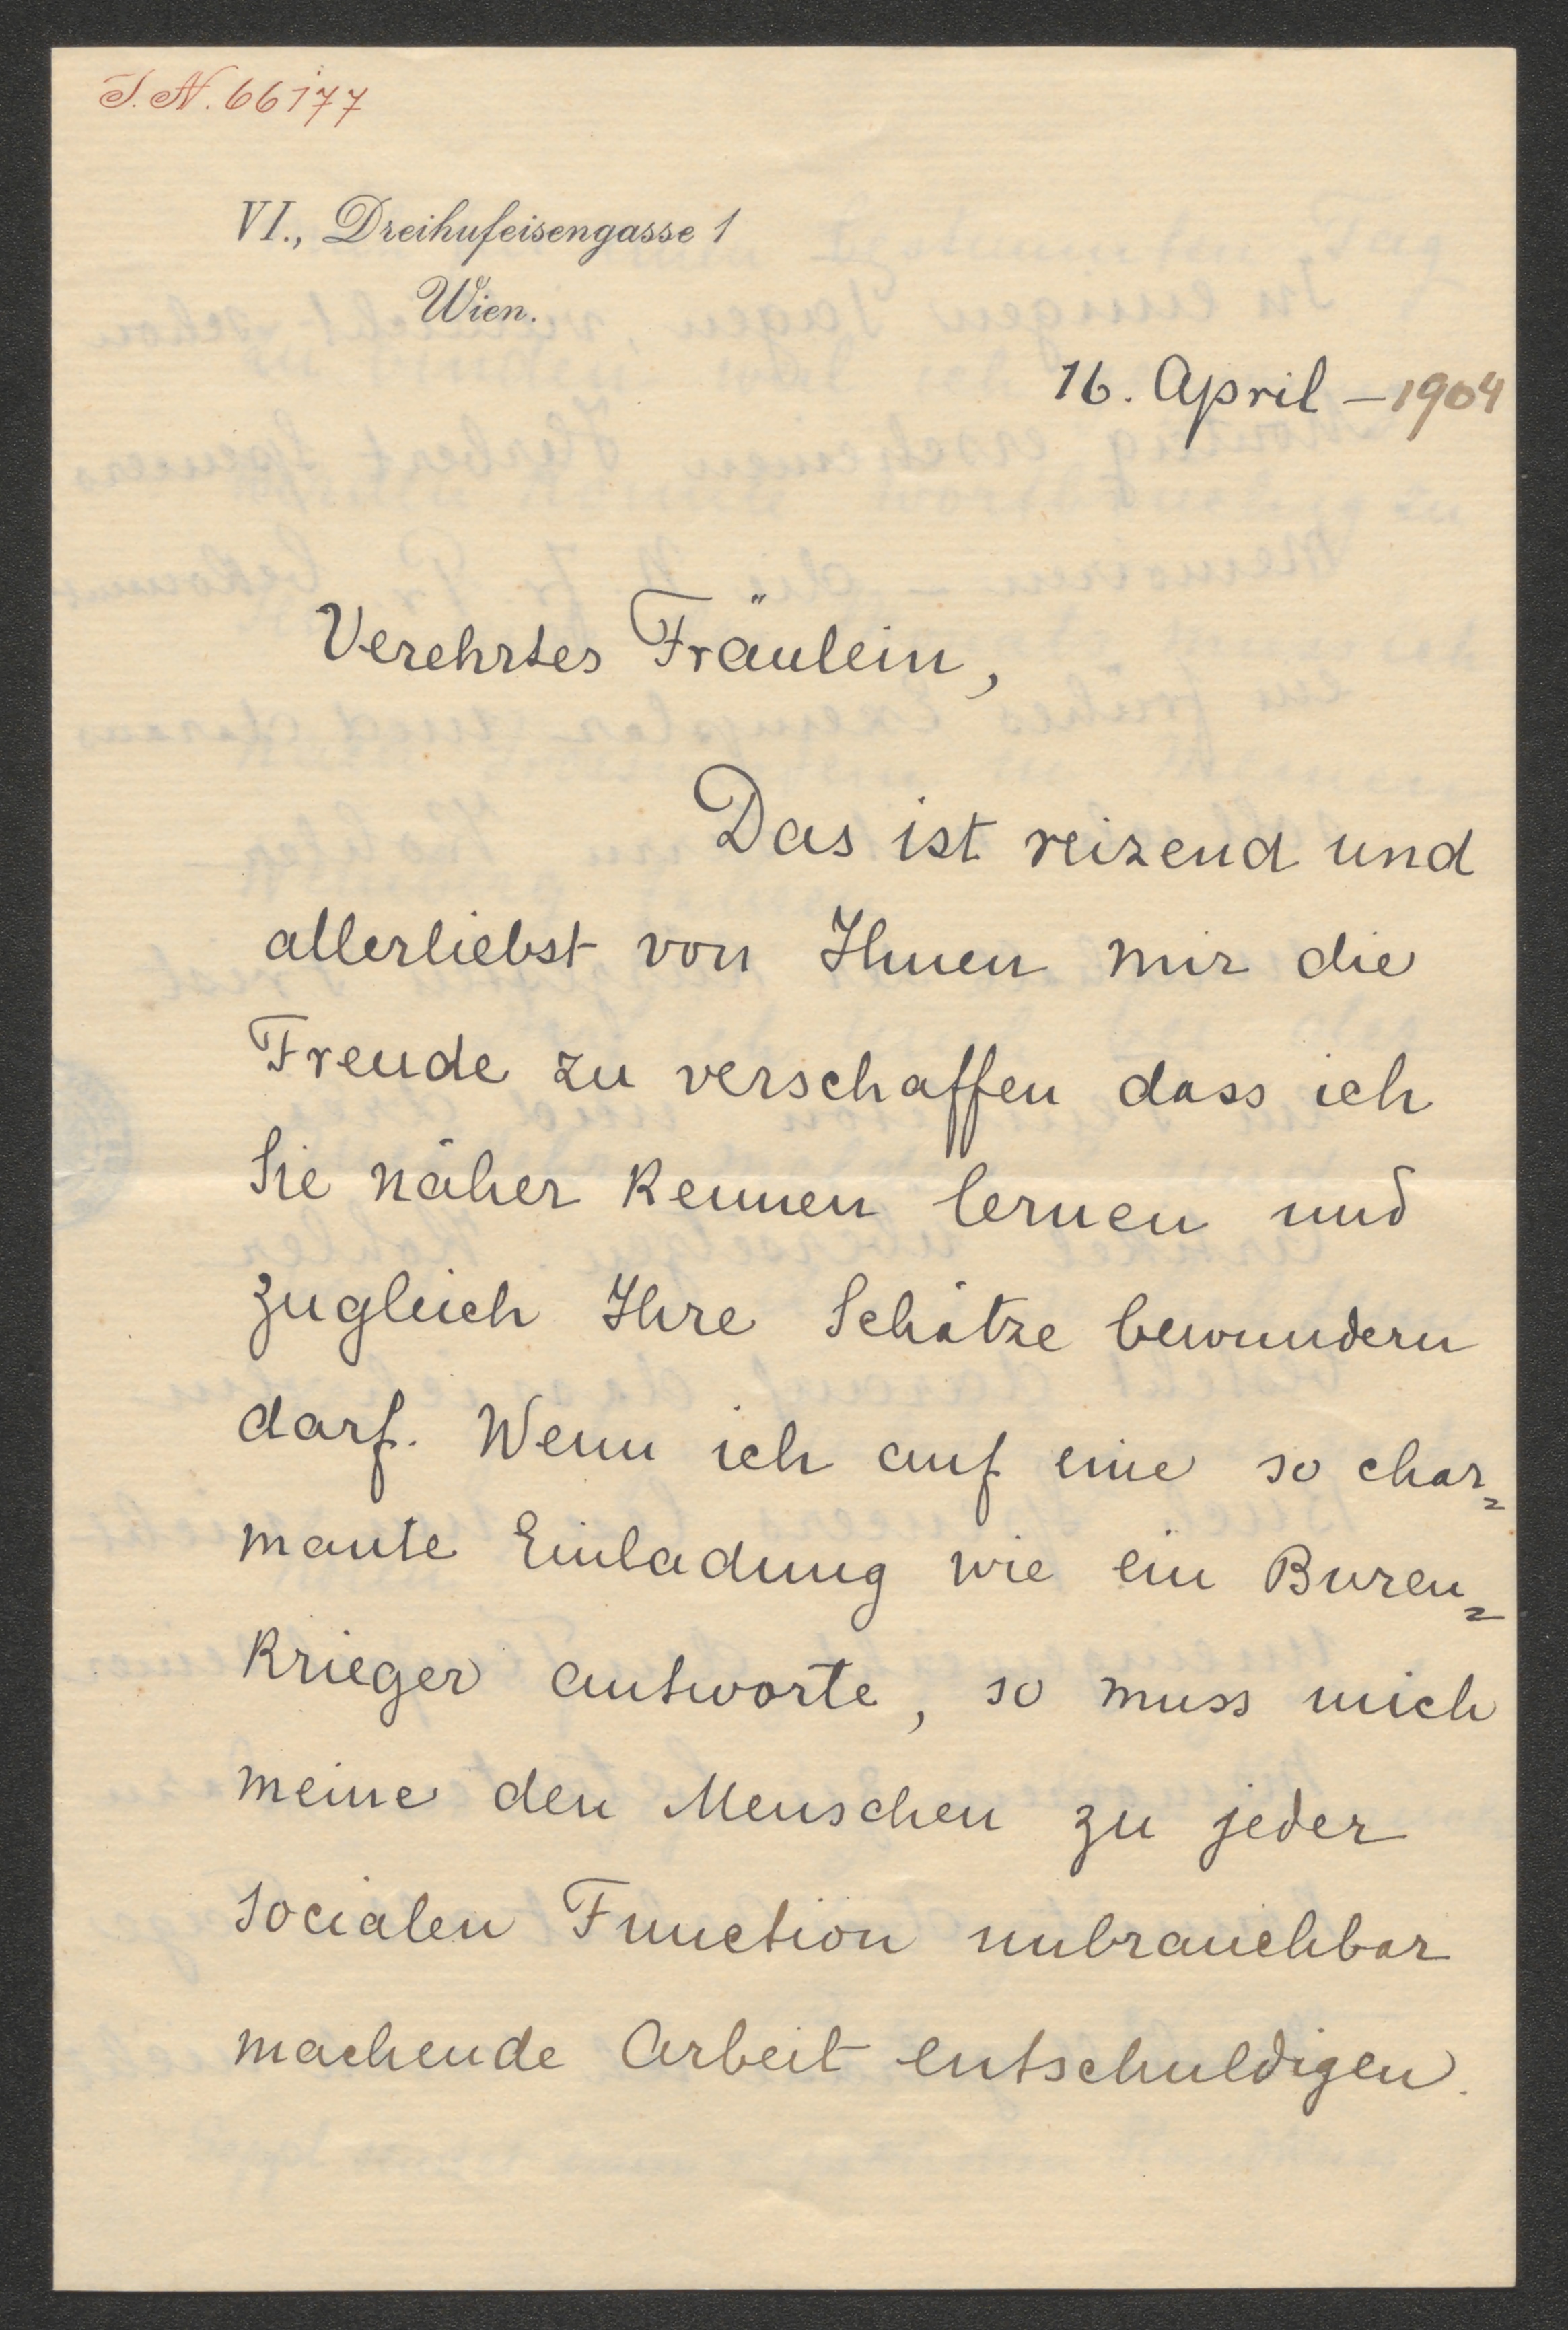 I. N. 66177
VI., Dreihufeisengasse 1
Wien.
16. April – 1904
Verehrtes Fräulein,
Das ist reizend und
allerliebst von Ihnen mir die
Freude zu verschaffen dass ich
Sie näher kennen lernen und
zugleich Ihre Schätze bewundern
darf. Wenn ich auf eine so char=
mante Einladung wie ein Buren=
krieger antworte, so muss mich
meine den Menschen zu jeder
socialen Function unbrauchbar
machende Arbeit entschuldigen.